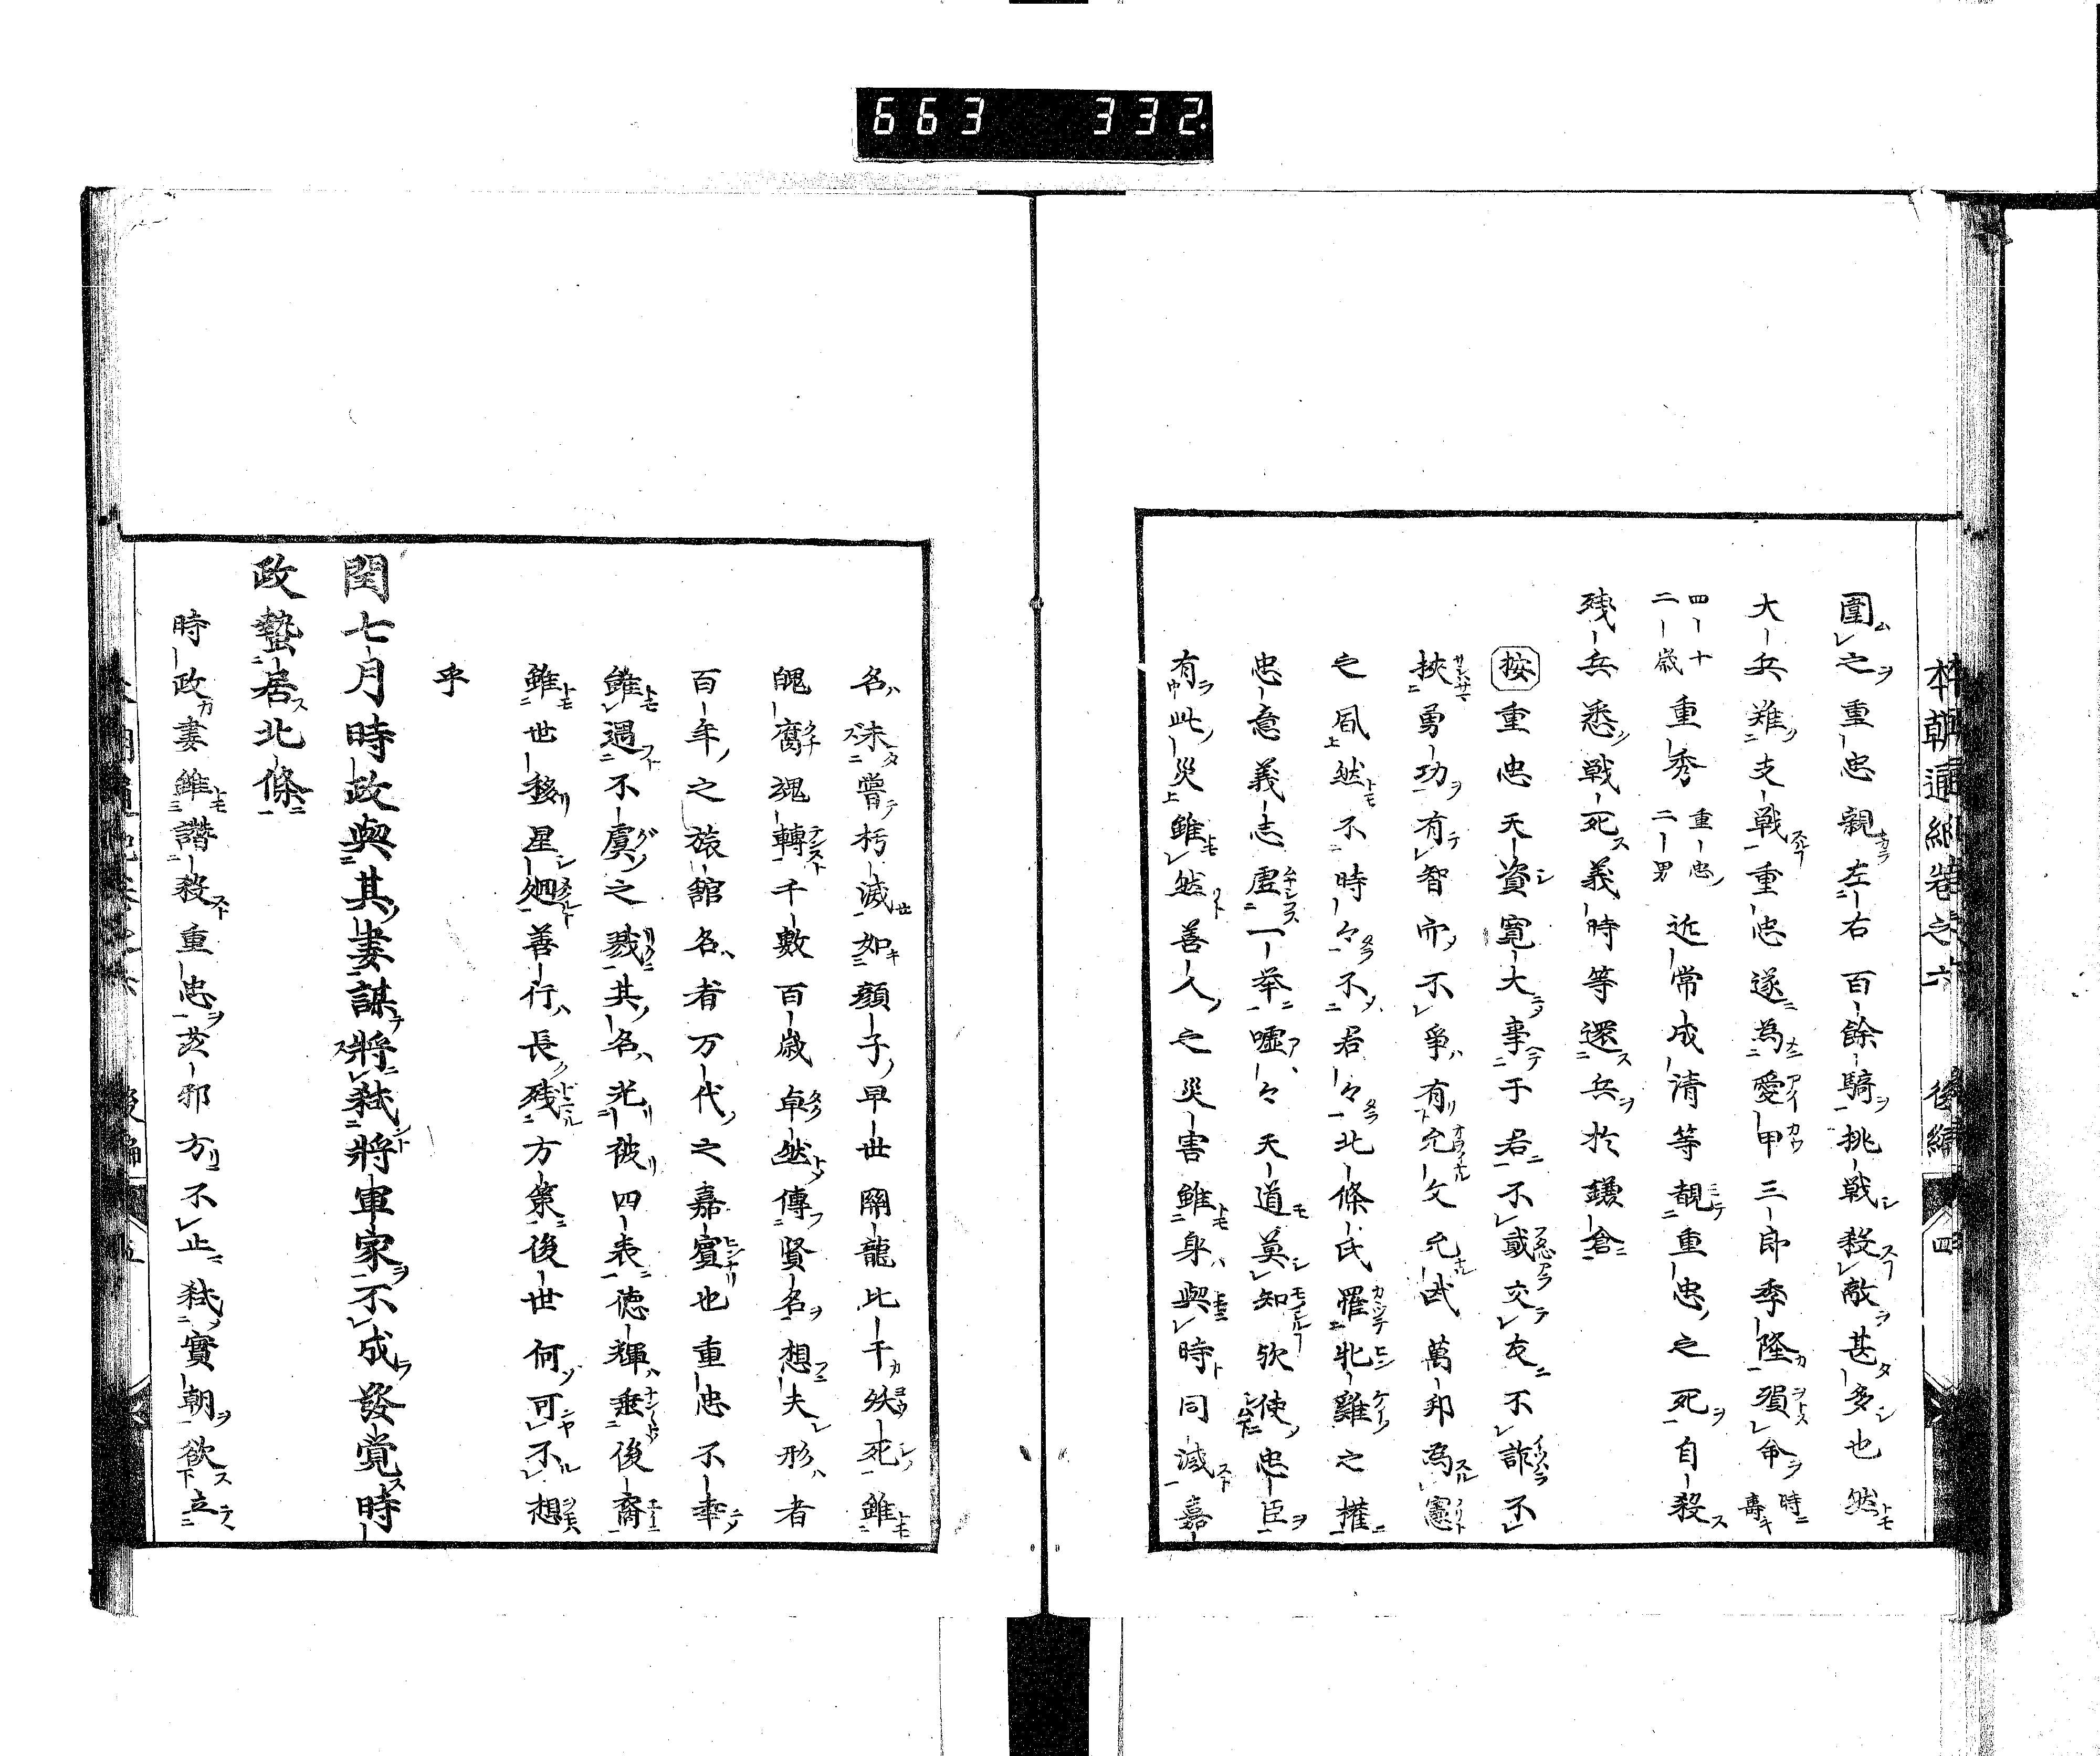 663 332
本朝通紀卷之六 後編 四
圍之重忠親左右百餘騎挑戰殺敵甚多也然
大兵難支戰重忠遂為愛甲三郎季隆殞命時壽
四十二歲重秀重忠二男近常成清等覩重忠之死自殺
残兵悉戰死義時等還兵於鎌倉
按重忠天資寬大事于君不貳交友不詐不
挾勇功有智而不爭有允文允武萬邦為憲
之風然不時々不君々北條氏罹牝雞之權
忠意義志虛一举嘘々天道莫知欤使忠臣
有此災雖然善人之災害雖身與時同滅嘉
名未嘗朽滅如顔子早世関龍比干殀死雖
魄腐魂轉千數百歲卓然傳賢名想夫形者
百年之旅館名者万代之嘉賓也重忠不幸
雖遇不虞之戮其名光被四表徳輝垂後裔
雖世移星廻善行長残方策後世何可不想
乎
閏七月時政與其妻謀將弑將軍家不成發覚時
政蟄居北條
時政妻雖譖殺重忠茲邪方不止弑實朝欲立